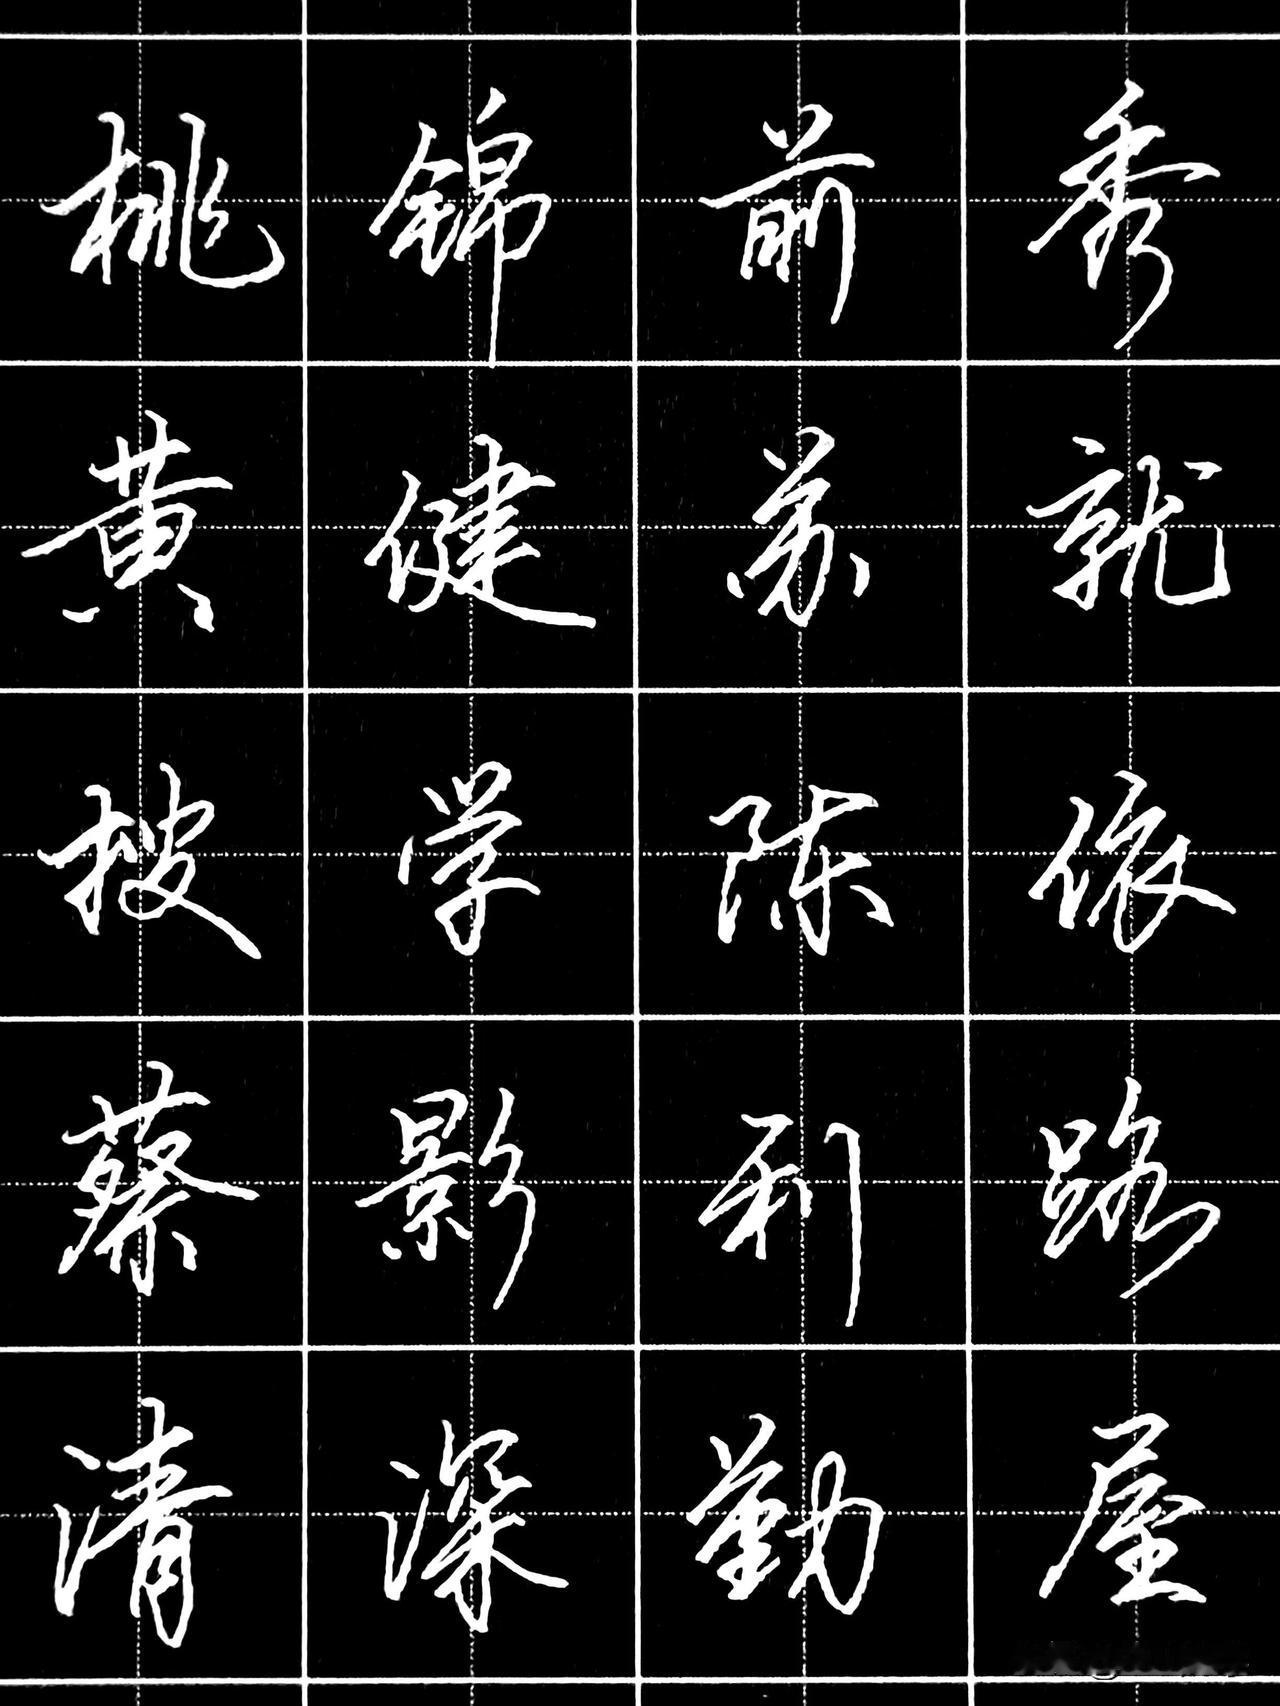 桃锦前秀
黄健苏就
搜学陈依
蔡影利路
清深勤屋